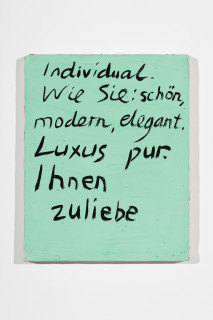 Individual.
Wie Sie: schön,
modern, elegant.
Luxus pur.
Ihnen
zuliebe